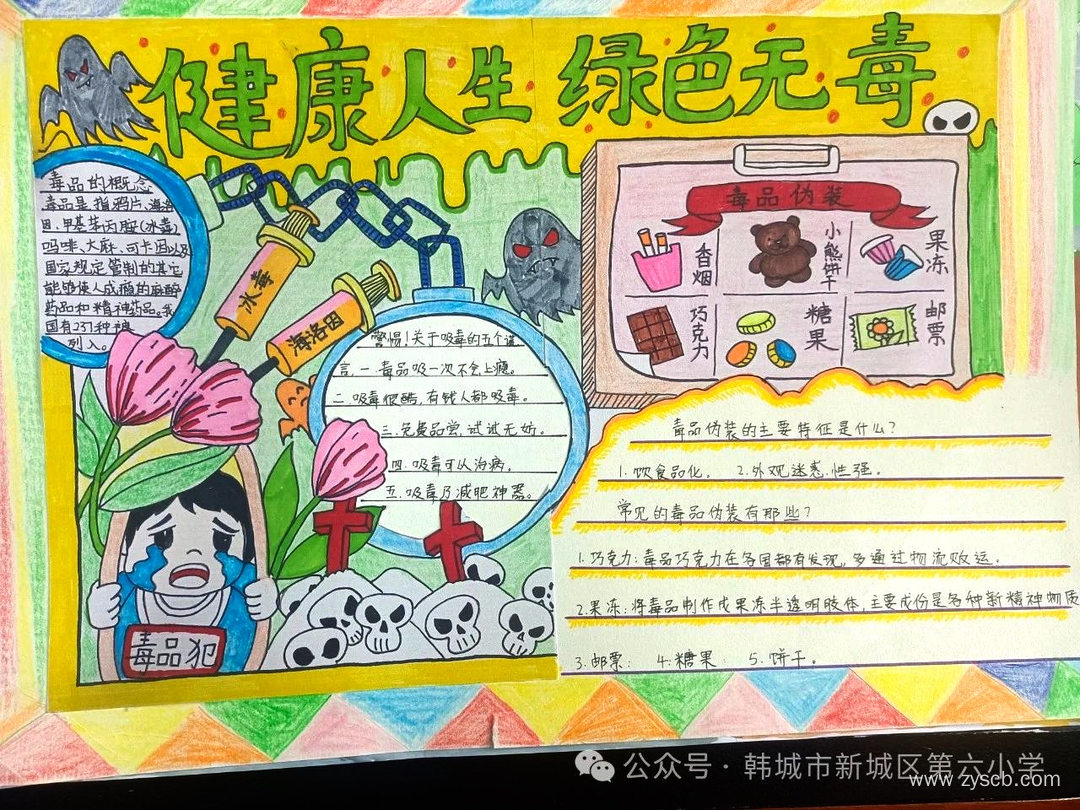 健康人生 绿色无毒
毒品的概念
毒品是指鸦片、海洛
因、甲基苯丙胺(冰毒)
吗啡、大麻、可卡因以及
国家规定管制的其它
能够使人成瘾的麻醉
药品和精神药品。我
国有237种被
列入。
冰毒
海洛因
警惕!关于吸毒的五个谎
言,一.毒品吸一次不会上瘾。
二.吸毒很酷,有钱人都吸毒。
三.免费品尝,试试无妨。
四.吸毒可以治病。
五.吸毒乃减肥神器。
毒品犯
毒品伪装
香烟
小熊饼干
果冻
巧克力
糖果
邮票
毒品伪装的主要特征是什么?
1.饮食品化。 2.外观迷惑性强。
常见的毒品伪装有那些?
1.巧克力:毒品巧克力在各国都有发现,多通过物流贩运。
2.果冻:将毒品制作成果冻半透明胶体,主要成份是各种新精神物质
3.邮票: 4.糖果 5.饼干。
公众号·韩城市新城区第六小学
www.zyscb.com